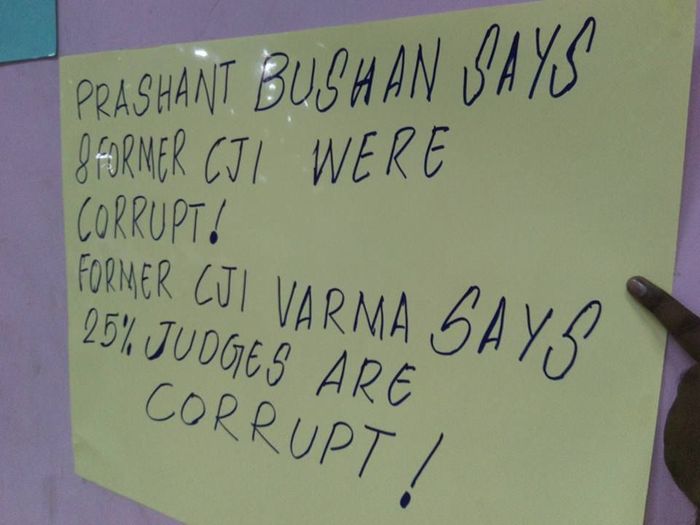 PRASHANT BUSHAN SAYS
8 FORMER CJI WERE
CORRUPT!
FORMER CJI VARMA SAYS
25% JUDGES ARE
CORRUPT!